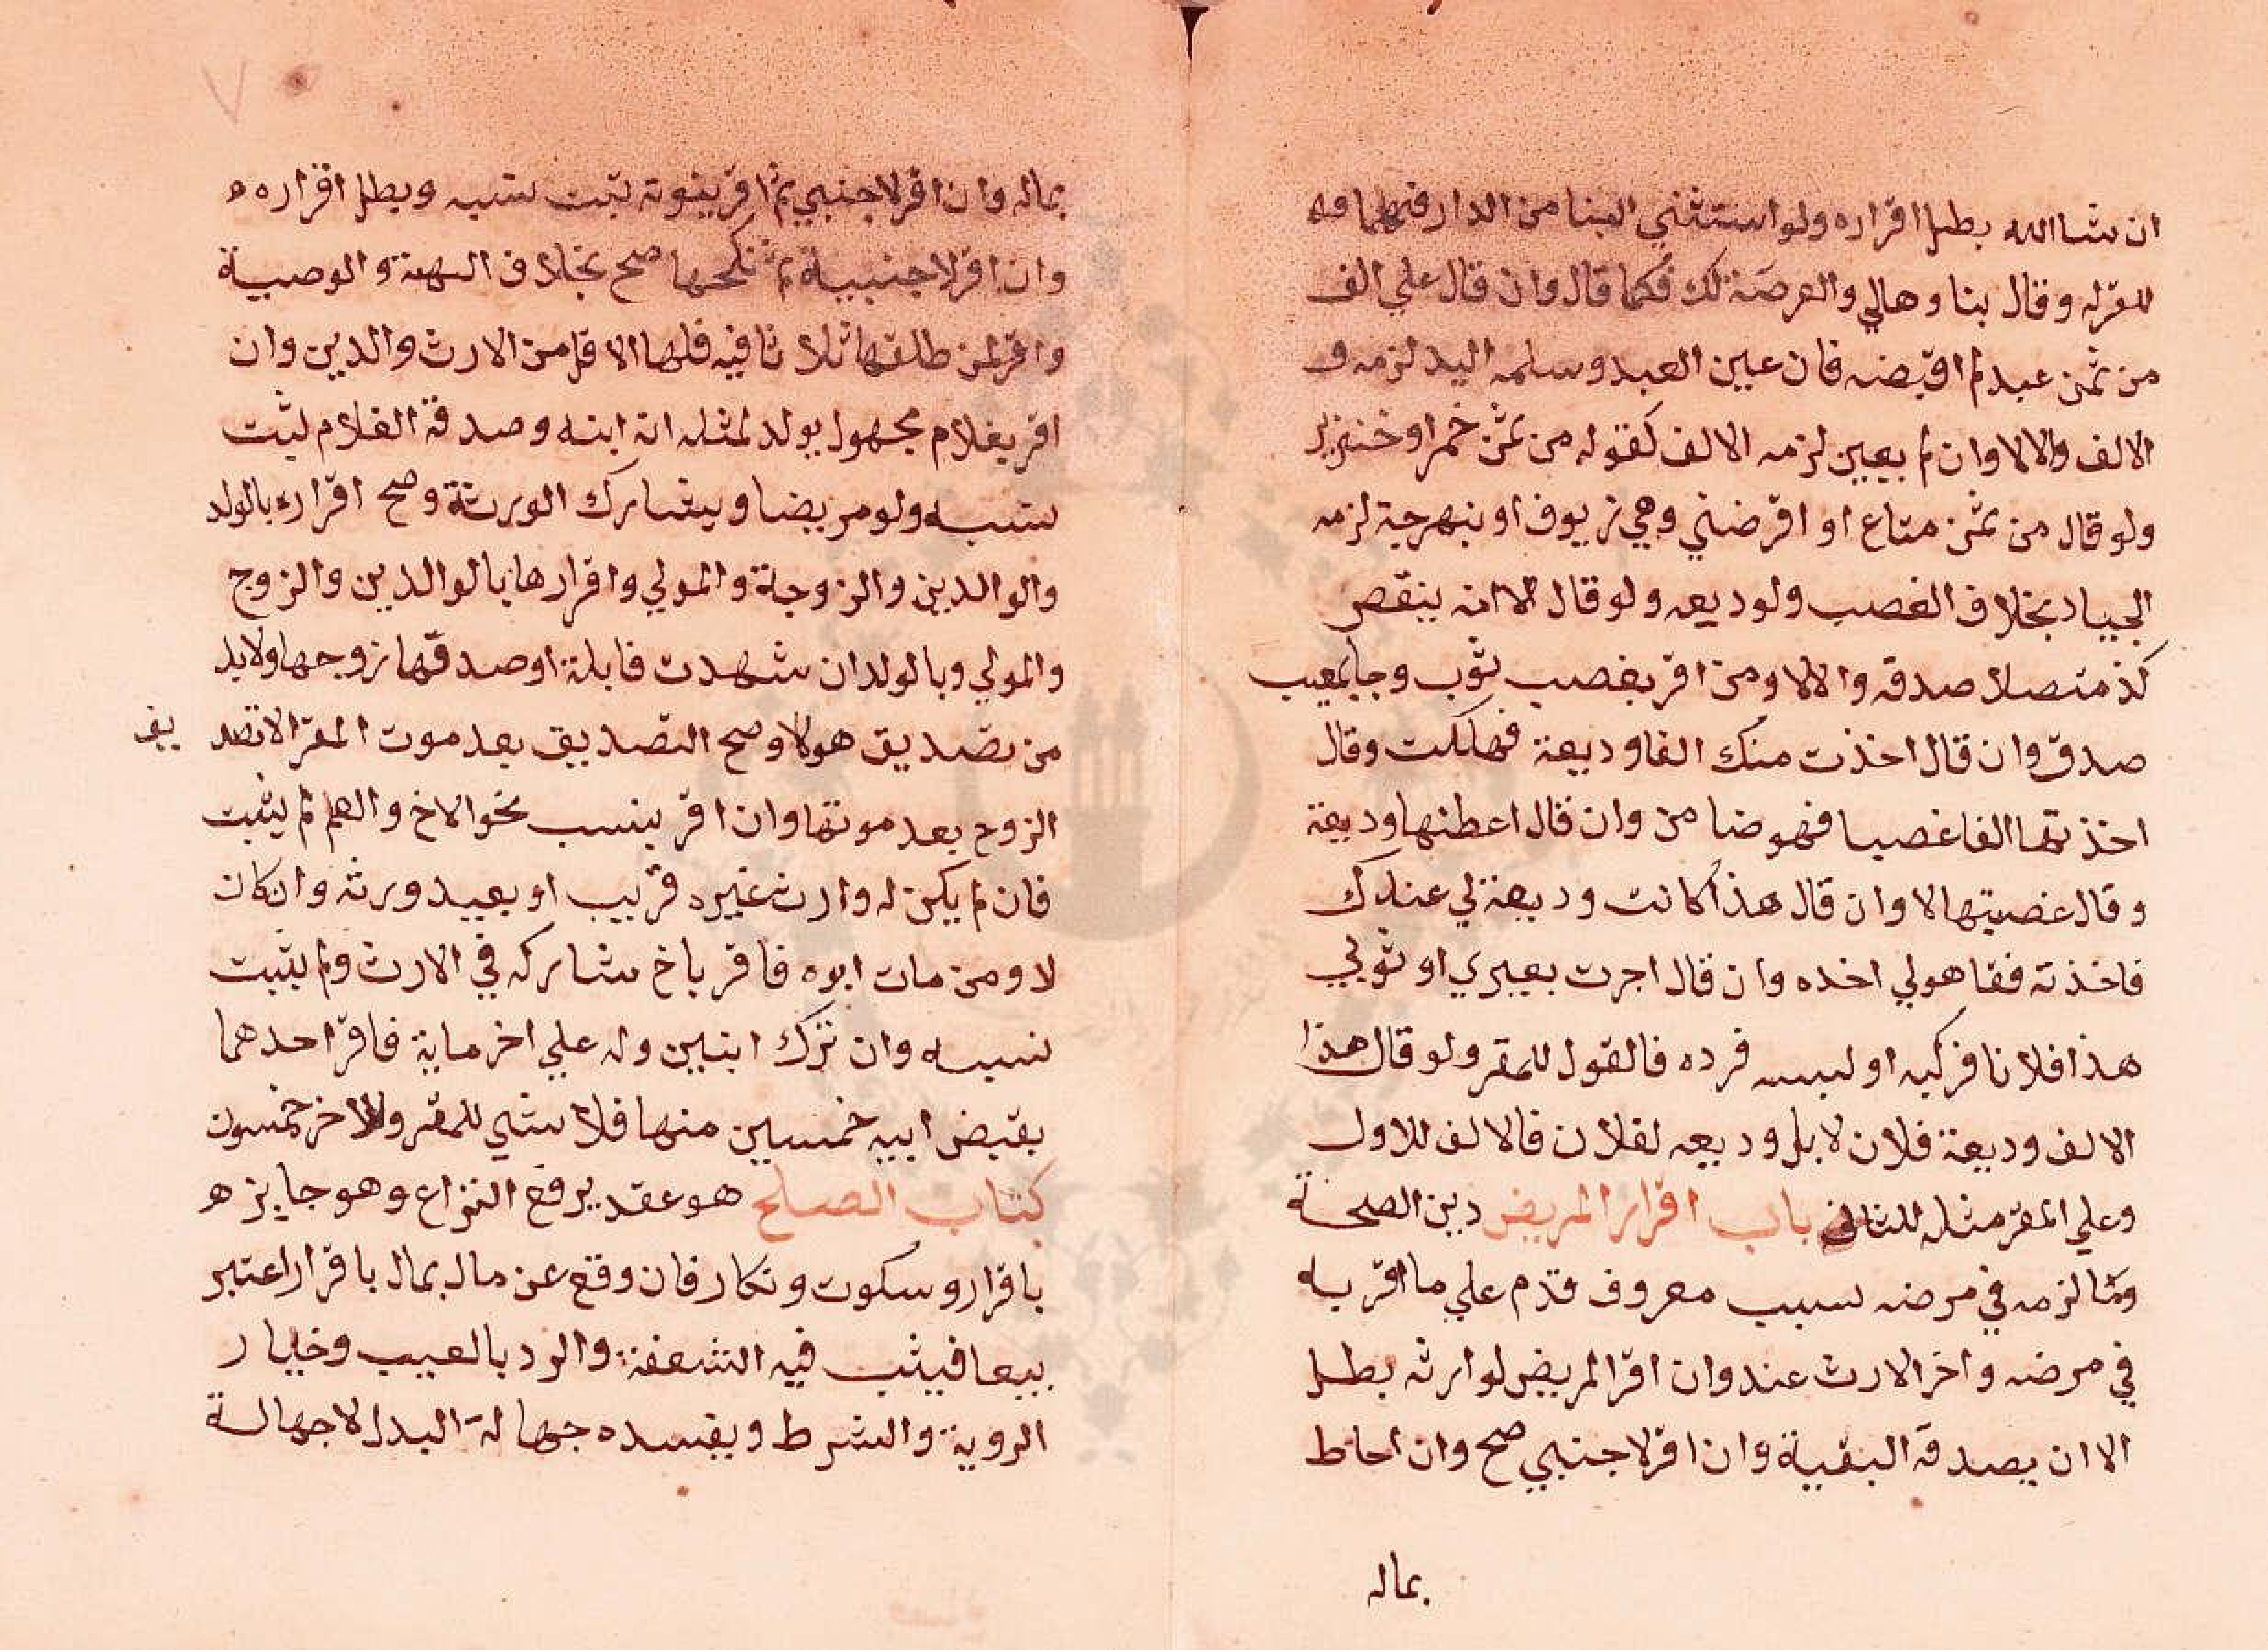 ان شاالله بطل اقراره ولو استثني البنا من الدار فهما
للمقرله وقال بناوهالي والعرصة لك فكما قال وان قال علي الف
من ثمن عبد لم اقبضه فان عين العبد وسلمه اليه لزمه
الالف والالا وان لم يعين لزمه الالف كقوله من ثمن خمر او خنزير
ولو قال من ثمن متاع او اقرضني وهي زيوف او بنهرجة لزمه
الجياد بخلاف الغصب ولوديعه ولو قال الا انه ينقص
كذ متصلا صدقه والالا ومن اقر بغصب ثوب وجا بمعيب
صدق وان قال اخذت منك الفا وديعة فهلكت وقال
اخذتها الفا غصبا فهو ضامن وان قال اعطنها وديعة
وقال غصبتها لا وان قال هذا كانت وديعة لي عندك
فاخذته فقا هولي اخده وان قال اجرت بعيري او ثوبي
هذا فلانا فركبه او لبسه فرده فالقول للمقر ولو قال هذا
الالف وديعة فلان لا بل وديعه لفلان فالالف للاول
وعلي المقر مثله للثاني باب اقرار المريض دين الصحة
وما لزمه في مرضه لسبب معروف قدم علي ما اقر به
في مرضه واخر الارث عند وان اقر المريض لوارثه بطل
الا ان يصدقه البقية وان اقر لاجنبي صح وان احاط
بماله
بماله وان اقر لاجنبي ثم اقر ببنوته ثبت نسبه وبطل اقراره
وان اقر لاجنبية ثم نكحها صح بخلاف الهبة والوصية
واقر لمن طلقها ثلاثا فيه فلها الاقل من الارث والدين وان
اقر بغلام مجهول يولد لمثله انه ابنه وصدقه الغلام ثبت
نسبه ولو مريضا ويشارك الورثة وصح اقراره بالولد
والوالدين والزوجة والمولي واقرارها بالوالدين والزوج
والمولي وبالولد ان شهدت قابلة او صدقها زوجها ولابد
من تصديق هولا وصح التصديق بعد موت المقر الا تصد يق
الزوج بعد موتها وان اقر بنسب نحو الاخ والعم لم يثبت
فان لم يكن له وارث غيره قريب او بعيد ورثه وان كان
لا ومن مات ابوه فاقر باخ شاركه في الارث ولم يثبت
نسبه وان ترك ابنين وله علي اخر ماية فاقر احدهما
بقبض ابيه خمسين منها فلا شي للمقر وللاخر خمسون
كتاب الصلح هو عقد يرفع النزاع وهو جايز
باقرار وسكوت ونكار فان وقع عن مال بمال باقرار اعتبر
بيعا فيثب فيه الشفعة والرد بالعيب وخيار
الروية والشرط ويفسده جهالة البدل لا جهالة